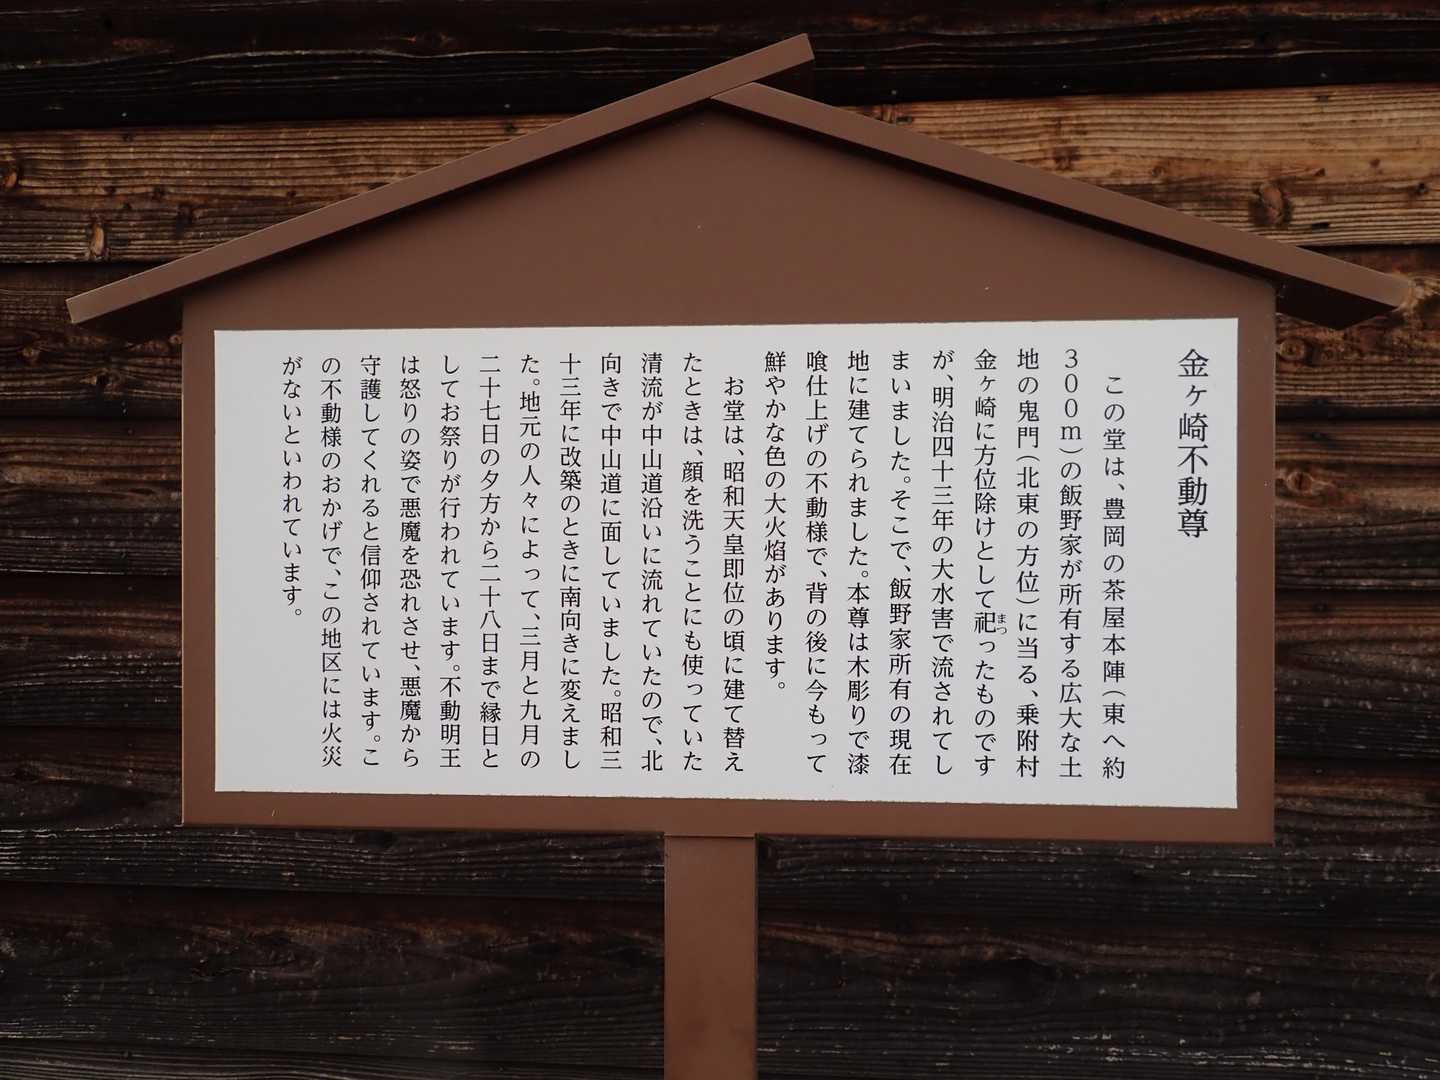 金ヶ崎不動尊
この堂は、豊岡の茶屋本陣（東へ約
３００ｍ）の飯野家が所有する広大な土
地の鬼門（北東の方位）に当る、乗附村
金ヶ崎に方位除けとして祀ったものです
まつ
が、明治四十三年の大水害で流されてし
まいました。そこで、飯野家所有の現在
地に建てられました。本尊は木彫りで漆
喰仕上げの不動様で、背の後に今もって
鮮やかな色の大火焰があります。
お堂は、昭和天皇即位の頃に建て替え
たときは、顔を洗うことにも使っていた
清流が中山道沿いに流れていたので、北
向きで中山道に面していました。昭和三
十三年に改築のときに南向きに変えまし
た。地元の人々によって、三月と九月の
二十七日の夕方から二十八日まで縁日と
してお祭りが行われています。不動明王
は怒りの姿で悪魔を恐れさせ、悪魔から
守護してくれると信仰されています。こ
の不動様のおかげで、この地区には火災
がないといわれています。